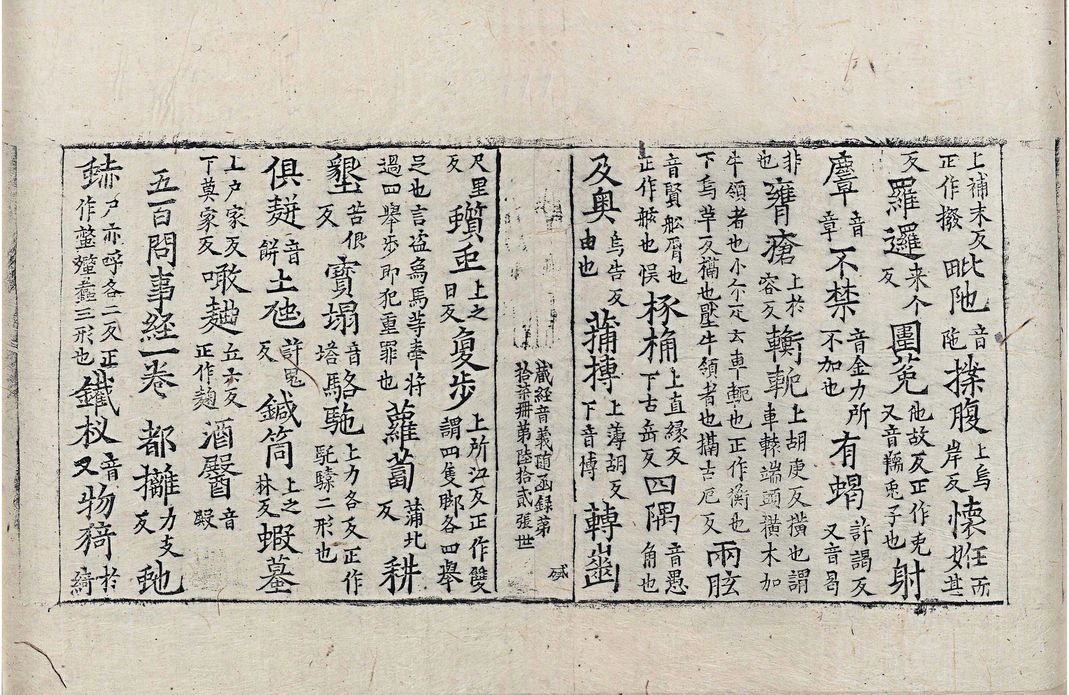 上補末反正作撥毗阤音陁揲腹上烏岸反懷妊所
反羅邏来个反團菟他故反正作兎又音𪕐兎子也射
麞音章不禁音金力所不加也有蝎許謁反又音曷
非也𤸷瘡上於容反轅軛上胡庚反橫也謂車轅端頭橫木加
牛領者也小尒疋云車軶也正作衡也下烏革反槅也壓牛領者也槅古厄反兩胘
音賢舩脣也正作舷也悮椓桷上直縁反下古岳反四隅音愚角也
及奧烏告反由也蒲摶上薄胡反下音博轉齒
藏経音義随函録第拾柒冊第陸拾貳張世
尺里反蠐𧉐上之日反夐步上所江反正作雙謂四隻脚各四舉
足也言盜爲馬等牽將過四舉步即犯重罪也蘿蔔蒲北反耕
墾苦佷反寳塌音塔駱駞上力各反正作馲𩦺二形也
俱𪌘音餅土虺許鬼反鍼筒上之林反蝦蟇
上户家反下莫家反噉麯丘六反正作麴酒醫音殹
五百問事経一卷 都攡力支反虵
𧋍户亦呼各二反正作螫𧓽蠚三形也鑯杈又音物猗於綺